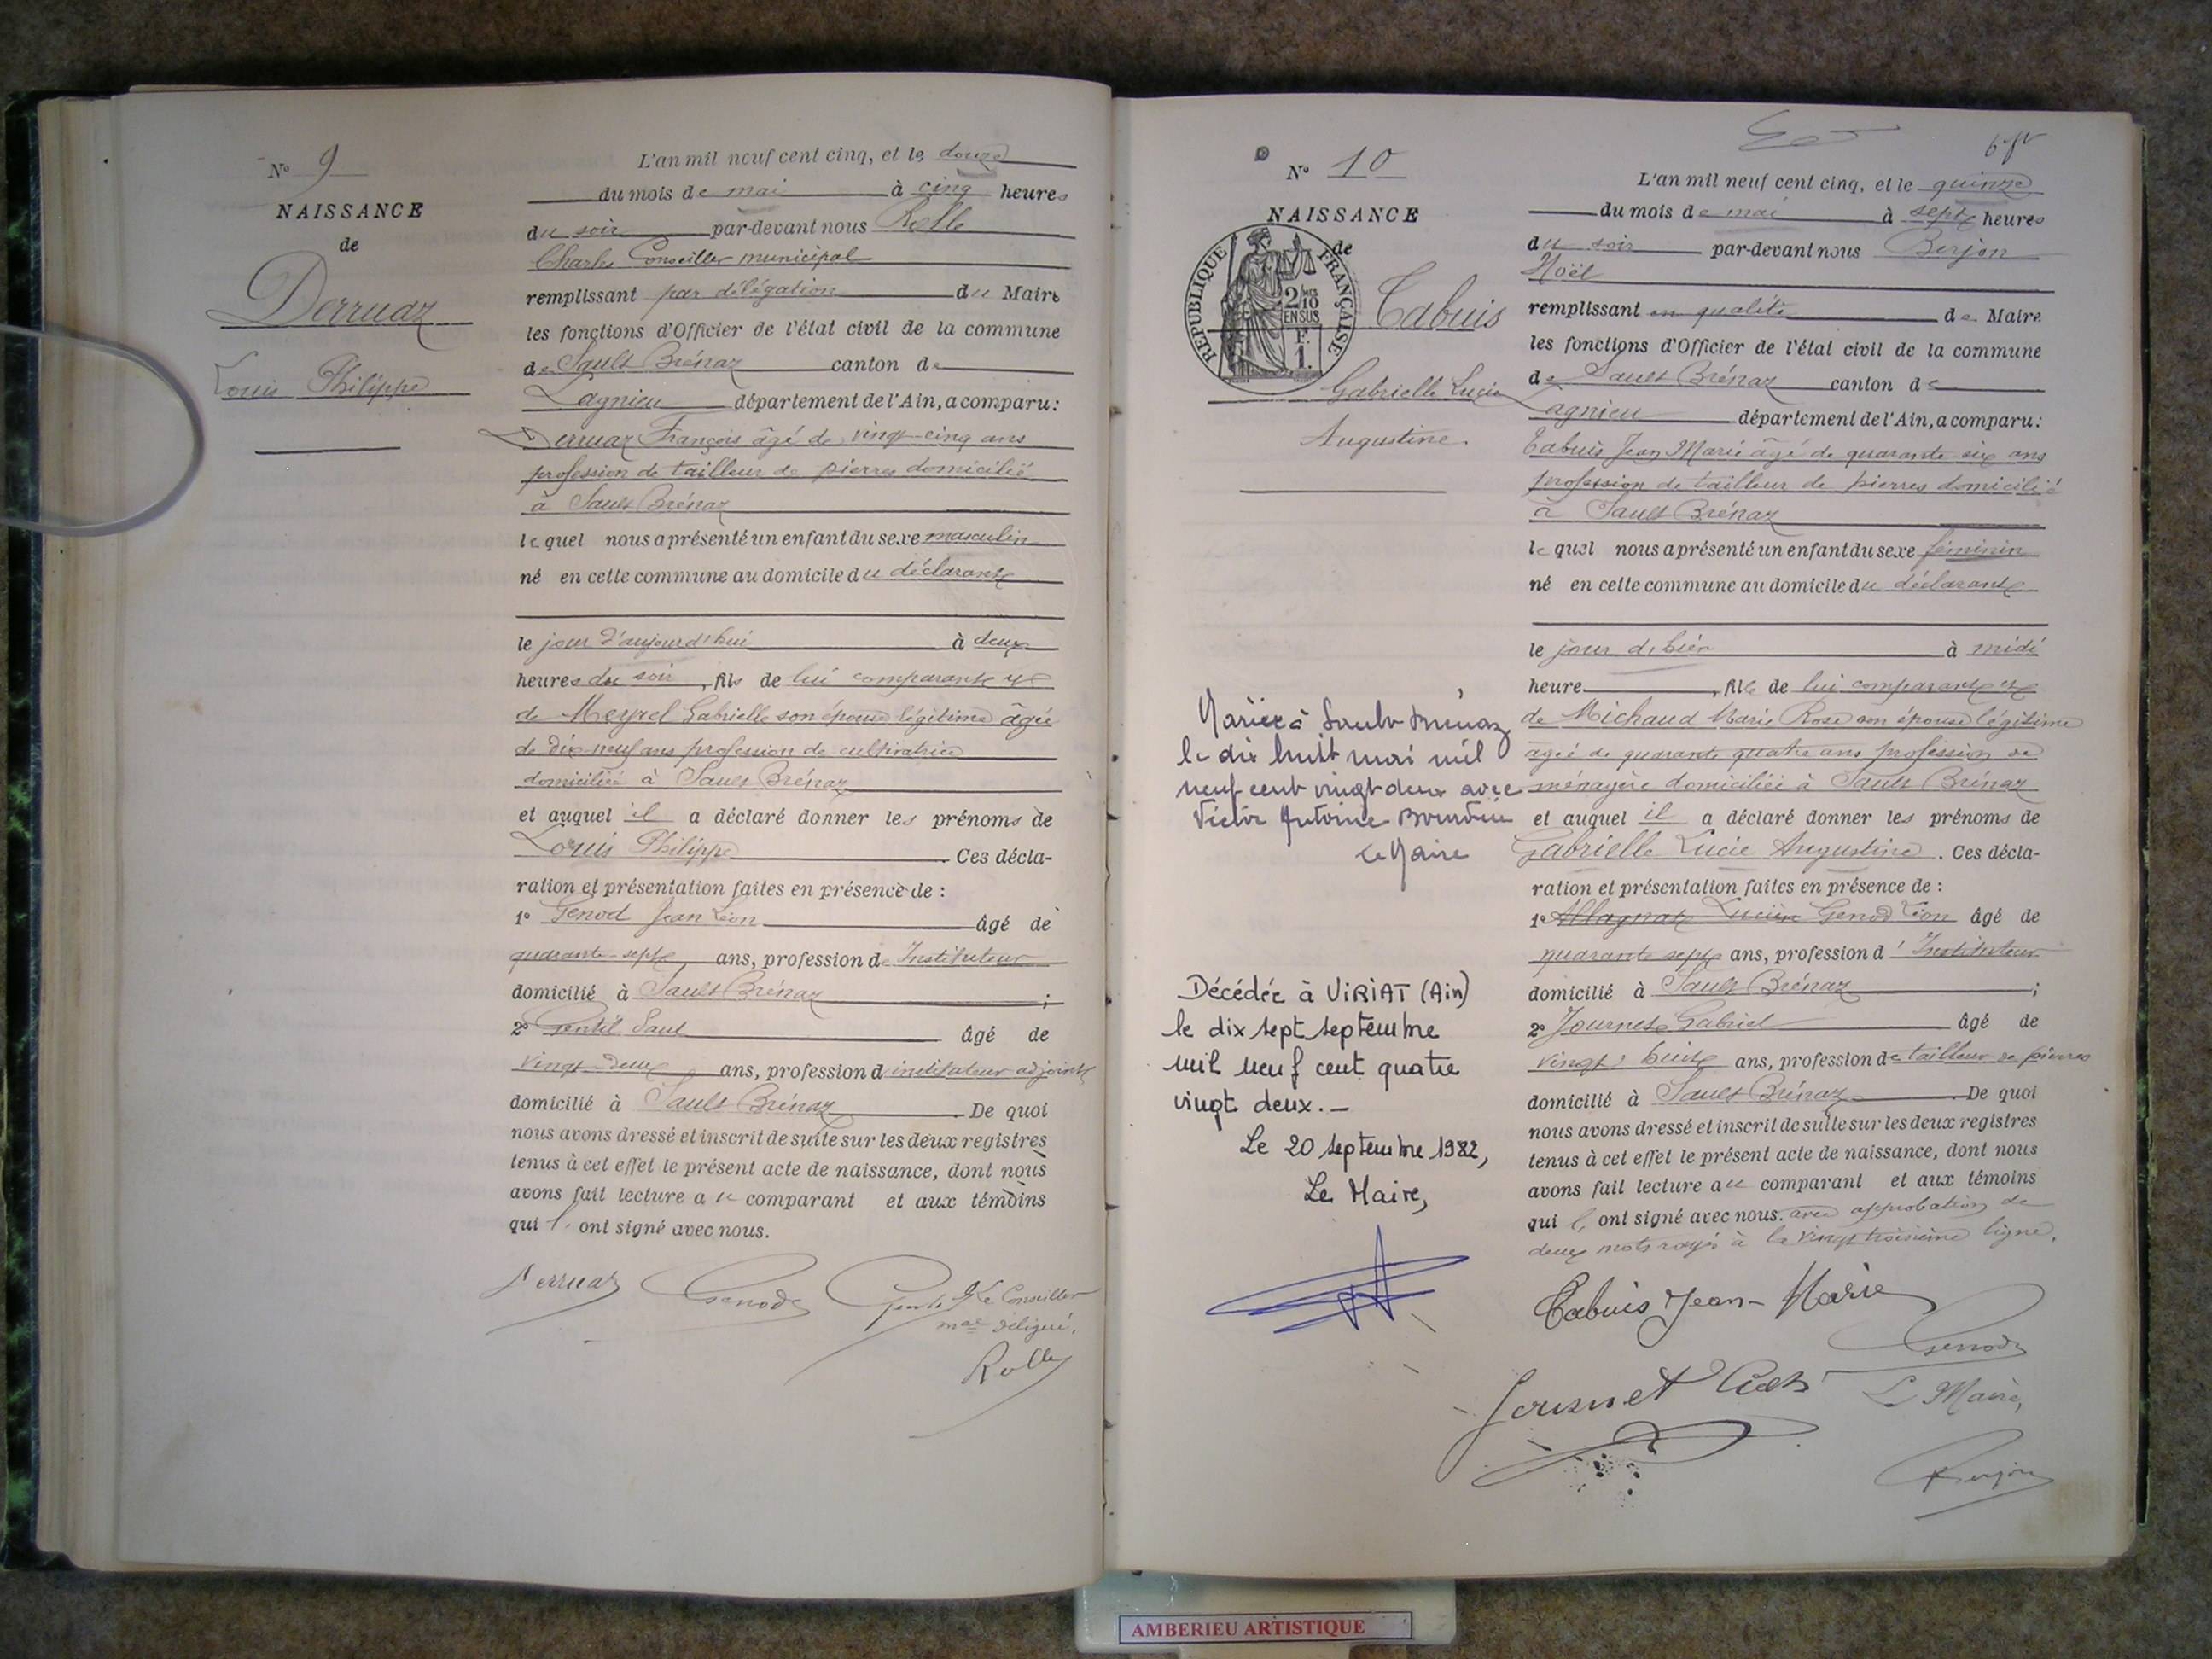 N° 9
NAISSANCE
de
Derruaz
Louis Philippe
L'an mil neuf cent cinq, et le douze
du mois de mai à cinq heures
du soir par-devant nous Rolle
Charles Conseiller municipal
remplissant par délégation du Maire
les fonctions d'Officier de l'état civil de la commune
de Sault Brénaz canton de
Lagnieu département de l'Ain, a comparu:
Derruaz François âgé de vingt-cinq ans
profession de tailleur de pierres domicilié
à Sault Brénaz
lequel nous a présenté un enfant du sexe masculin
né en cette commune au domicile du déclarant
le jour d'aujourd'hui à deux
heures du soir, fils de lui comparant et
de Meyrel Gabrielle son épouse légitime âgée
de dix-neuf ans profession de cultivatrice
domiciliée à Sault Brénaz
et auquel il a déclaré donner les prénoms de
Louis Philippe. Ces décla-
ration et présentation faites en présence de :
1° Genod Jean Léon âgé de
quarante-sept ans, profession de Instituteur
domicilié à Sault Brénaz;
2° Gentil Paul âgé de
vingt-deux ans, profession d'instituteur adjoint
domicilié à Sault Brénaz. De quoi
nous avons dressé et inscrit de suite sur les deux registres
tenus à cet effet le présent acte de naissance, dont nous
avons fait lecture au comparant et aux témoins
qui l'ont signé avec nous.
Derruaz Genod Gentil Le Conseiller
mal délégué,
Rolle
N° 10
NAISSANCE
de
RÉPUBLIQUE FRANÇAISE
2/10
EN SUS
F.
1.
Cabuis
Gabrielle Lucie
Augustine.
Mariée à Sault-Brénaz
le dix huit mai mil
neuf cent vingt deux avec
Victor Antoine
Le Maire
Décédée à VIRIAT (Ain)
le dix sept septembre
mil neuf cent quatre
vingt deux.-
Le 20 septembre 1982,
Le Maire,
L'an mil neuf cent cinq, et le quinze
du mois de mai à sept heures
du soir par-devant nous Berjon
Noël
remplissant en qualité de Maire
les fonctions d'Officier de l'état civil de la commune
de Sault Brénaz canton de
Lagnieu département de l'Ain, a comparu:
Cabuis Jean Marie âgé de quarante-six ans
profession de tailleur de pierres domicilié
à Sault Brénaz
lequel nous a présenté un enfant du sexe féminin
né en cette commune au domicile du déclarant
le jour d'hier à midi
heure, fille de lui comparant et
de Michaud Marie Rose son épouse légitime
âgée de quarante quatre ans profession de
ménagère domiciliée à Sault Brénaz
et auquel il a déclaré donner les prénoms de
Gabrielle Lucie Augustine. Ces décla-
ration et présentation faites en présence de :
1° Allagnat Lucien Genod Léon âgé de
quarante sept ans, profession d'Instituteur
domicilié à Sault Brénaz;
2° Journet Gabriel âgé de
vingt huit ans, profession de tailleur de pierres
domicilié à Sault Brénaz. De quoi
nous avons dressé et inscrit de suite sur les deux registres
tenus à cet effet le présent acte de naissance, dont nous
avons fait lecture au comparant et aux témoins
qui l'ont signé avec nous. avec approbation de
deux mots rayés à la vingt troisième ligne.
Cabuis Jean-Marie
Genod
Journet
Le Maire,
Berjon
AMBERIEU ARTISTIQUE